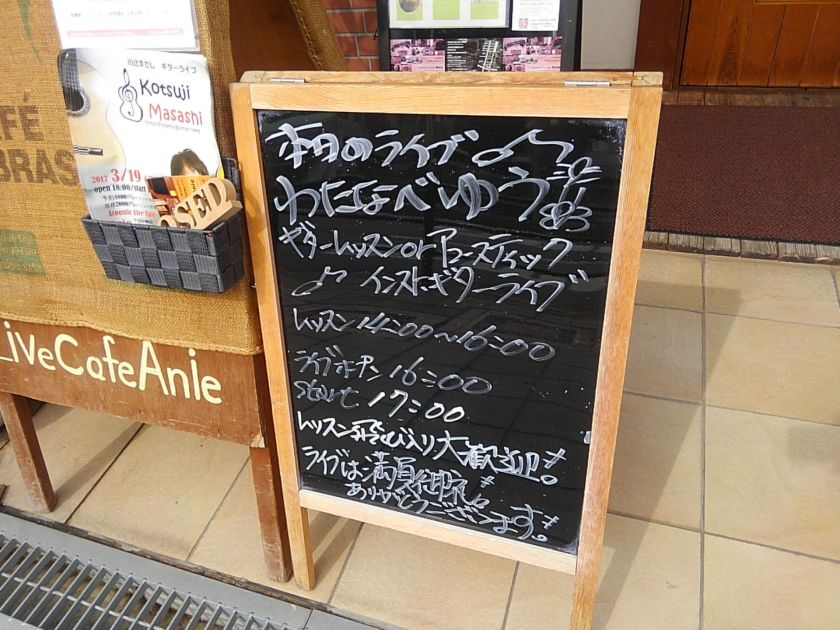 本日のライブ♪
わたなべゆう
ギターレッスンorアコースティック
♪インストギターライブ
レッスン14:00〜16:00
ライブオープン16:00
Start 17:00
レッスン飛び入り大歓迎。
ライブは満員御礼。
ありがとうございます。
Kotsuji
Masashi
2017 3/19
open 18:00/start
LiveCafeAnie
CLOSED
CAFÉ
BRAS